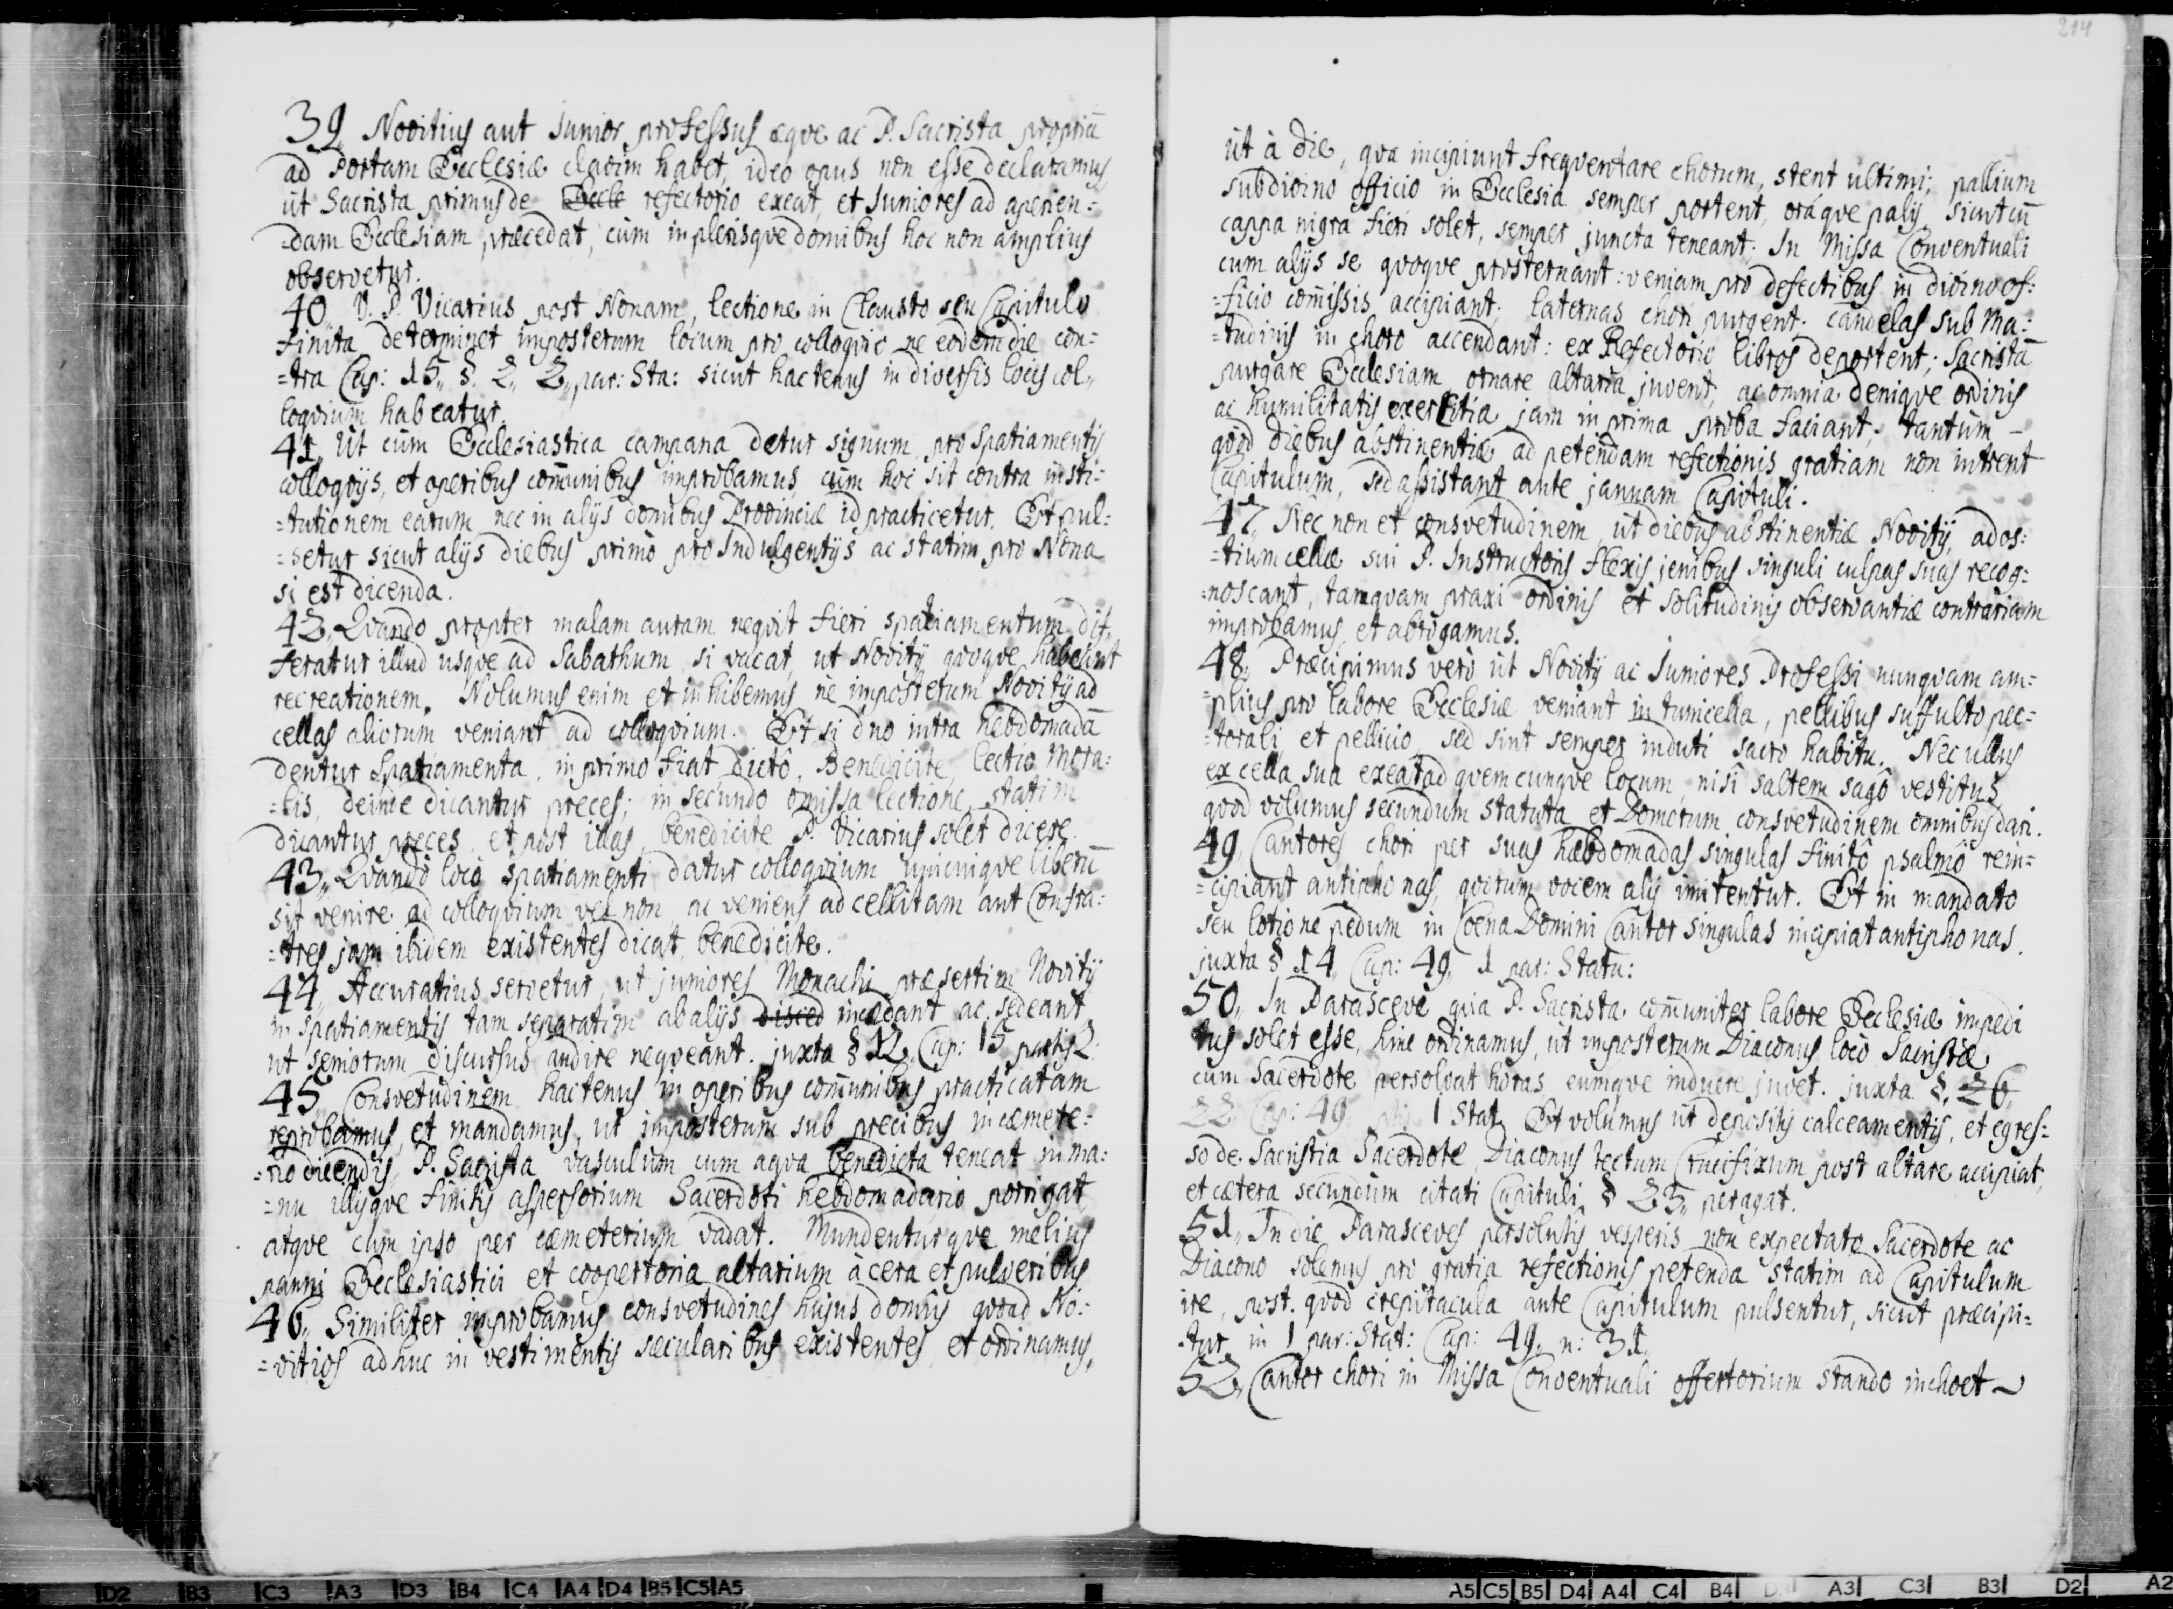 39, Novitius aut Junior professus æque ac P. Sacrista propriū
ad Portam Ecclesiæ clavim habet, ideo opus non esse declaramus
ut Sacrista primus de Eccle refectorio exeat, et Juniores ad aperien:
=dam Ecclesiam præcedat, cùm in plerisque domibus hoc non amplius
observetur.
40, V. P. Vicarius post Nonam, lectione in Claustro seu Capitulo
finita determinet imposterum locum pro colloquio ne eodem die con:
=tra Cap: 15, §. 2, 2, par: Sta: sicut hactenus in diversis locis col,,
loquium habeatur.
41, Ut cum Ecclesiastica campana detur signum pro Spatiamentis
colloquijs, et operibus com̄unibus improbamus cùm hoc sit contra insti:
=tutionem earum nec in alijs domibus Provinciæ id practicetur. Et pul:
=setur sicut alijs diebus primò pro Indulgentijs ac statim pro Nona
si est dicenda.
42, Quando propter malam auram nequit fieri spatiamentum dif,
feratur illud usque ad Sabathum si vacat, ut Novitij quoque habeant
recreationem. Nolumus enim et inhibemus nè imposterum Novitij ad
cellas aliorum veniant ad colloquium. Et si duo intra hebdomadā
dentur Spatiamenta, in primo fiat dictô Benedicite, lectio mora:
=lis, deinde dicantur preces; in secundo omissa lectione statim
dicantur preces et post illas benedicite P. Vicarius solet dicere.
43, Quando locô spatiamenti datur colloquium unicuique liberū
sit venire ad colloquium vel non, ac veniens ad cellitam aut Confra:
=tres jam ibidem existentes dicat benedicite.
44, Accuratius servetur ut juniores Monachi præsertim Novitij
in spatiamentis tam separatim ab alijs disced incedant ac sedeant
ut seniorum discursus audire nequeant. juxta § 12, Cap: 15 partis 2.
45 Consvetudinem hactenus in operibus com̄unibus practicatam
reprobamus, et mandamus, ut imposterum sub precibus in cæmete:
=rio dicendis, P. Sacrista vasculum cum aqua benedicta teneat in ma:
=nu illisque finitis aspersorium Sacerdoti hebdomadario porrigat
atque cum ipso per cæmeterium vadat. Mundenturque melius
panni Ecclesiastici et coopertoria altarium à cera et pulveribus
46, Similiter improbamus consvetudines hujus domûs quoad No:
=vitios adhuc in vestimentis sæcularibus existentes et ordinamus,
214
ut à die, qua incipiunt frequentare chorum, stent ultimi; pallium
sub divino officio in Ecclesia semper portent, oráque palij sicut cū
cappa nigra fieri solet, semper juncta teneant. In Missa Conventuali
cum alijs se quoque prosternant: veniam pro defectibus in divino of:
=ficio com̄issis accipiant. laternas chori purgent. candelas sub Ma:
=tudinis in choro accendant: ex Refectorio libros deportent; Sacristā
purgare Ecclesiam, ornare altaria juvent, ac omnia denique ordinis
ac humilitatis exercitia jam in prima proba faciant, tantùm
quòd diebus abstinentiæ ad petendam refectionis gratiam non intrent
Capitulum, sed assistant ante januam Capituli.
47, Nec non et consvetudinem, ut diebus abstinentiæ Novitij, ad os:
=tium cellæ sui P. Instructoris flexis jenibus singuli culpas suas recog:
=noscant, tamquam praxi ordinis et solitudinis observantiæ contrariam
improbamus, et abrogamus.
48, Præcipimus verò ut Novitij ac Juniores Professi nunquam am:
=plius pro labore Ecclesiæ veniant in tunicella, pellibus suffulto pec:
=torali et pellicio, sed sint semper induti sacro habitu. Nec ullus
ex cella sua exeat ad quemcunque locum, nisi saltem sagô vestitus,
quod volumus secundum statuta et Domorum consvetudinem omnibus dari.
49, Cantores chori per suas hæbdomadas singulas finitô psalmô rein:
=cipiant antiphonas, quorum vocem alij imitentur. Et in mandato
seu lotione pedum in Coena Domini Cantor singulas incipiat antiphonas.
juxta § 14, Cap: 49, 1 par: Statu:
50, In Parasceve quia P. Sacrista com̄uniter labore Ecclesiæ impedi
tus solet esse, hinc ordinamus, ut imposterum Diaconus locô Sacristæ
cum Sacerdote persolvat horas eumque induere juvet. juxta §, 26,
22 Cap: 49 1 Stat, Et volumus ut depositis calceamentis, et egres:
so de Sacristia Sacerdote, Diaconus tectum Crucifixum post altare accipiat,
et cætera secundum citati Capituli § 23, peragat.
51, In die Parasceves persolutis vesperis non expectato Sacerdote ac
Diacono solemus pro gratia refectionis petenda statim ad Capitulum
ire, post. quòd crepitacula ante Capitulum pulsentur, sicut præcipi=
tur in 1 par: Stat: Cap: 49, n: 31,
52, Cantor chori in Missa Conventuali offertorium stando inchoet